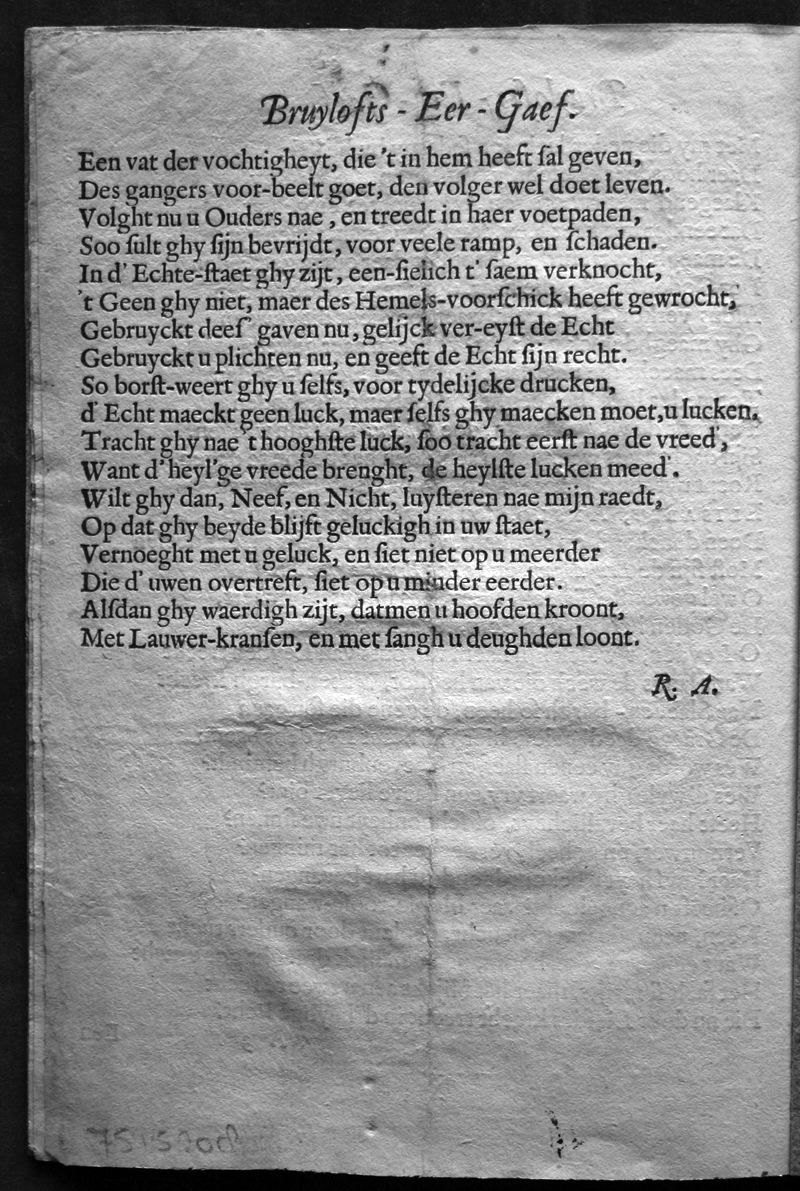 Bruylofts - Eer - Gaef.
Een vat der vochtigheyt, die 't in hem heeft ſal geven,
Des gangers voor-beelt goet, den volger wel doet leven.
Volght nu u Ouders nae, en treedt in haer voetpaden,
Soo ſult ghy ſijn bevrijdt, voor veele ramp, en ſchaden.
In d' Echte-ſtaet ghy zijt, een-ſielich t' ſaem verknocht,
't Geen ghy niet, maer des Hemels-voorſchick heeft gewrocht,
Gebruyckt deeſ' gaven nu, gelijck ver-eyſt de Echt
Gebruyckt u plichten nu, en geeft de Echt ſijn recht.
So borſt-weert ghy u ſelfs, voor tydelijcke drucken,
d' Echt maeckt geen luck, maer ſelfs ghy maecken moet, u lucken.
Tracht ghy nae 't hooghſte luck, ſoo tracht eerſt nae de vreed',
Want d' heyl'ge vreede brenght, de heylſte lucken meed'.
Wilt ghy dan, Neef, en Nicht, luyſteren nae mijn raedt,
Op dat ghy beyde blijft geluckigh in uw ſtaet,
Vernoeght met u geluck, en ſiet niet op u meerder
Die d' uwen overtreft, ſiet op u minder eerder.
Alſdan ghy waerdigh zijt, datmen u hoofden kroont,
Met Lauwer-kranſen, en met ſangh u deughden loont.
R. A.